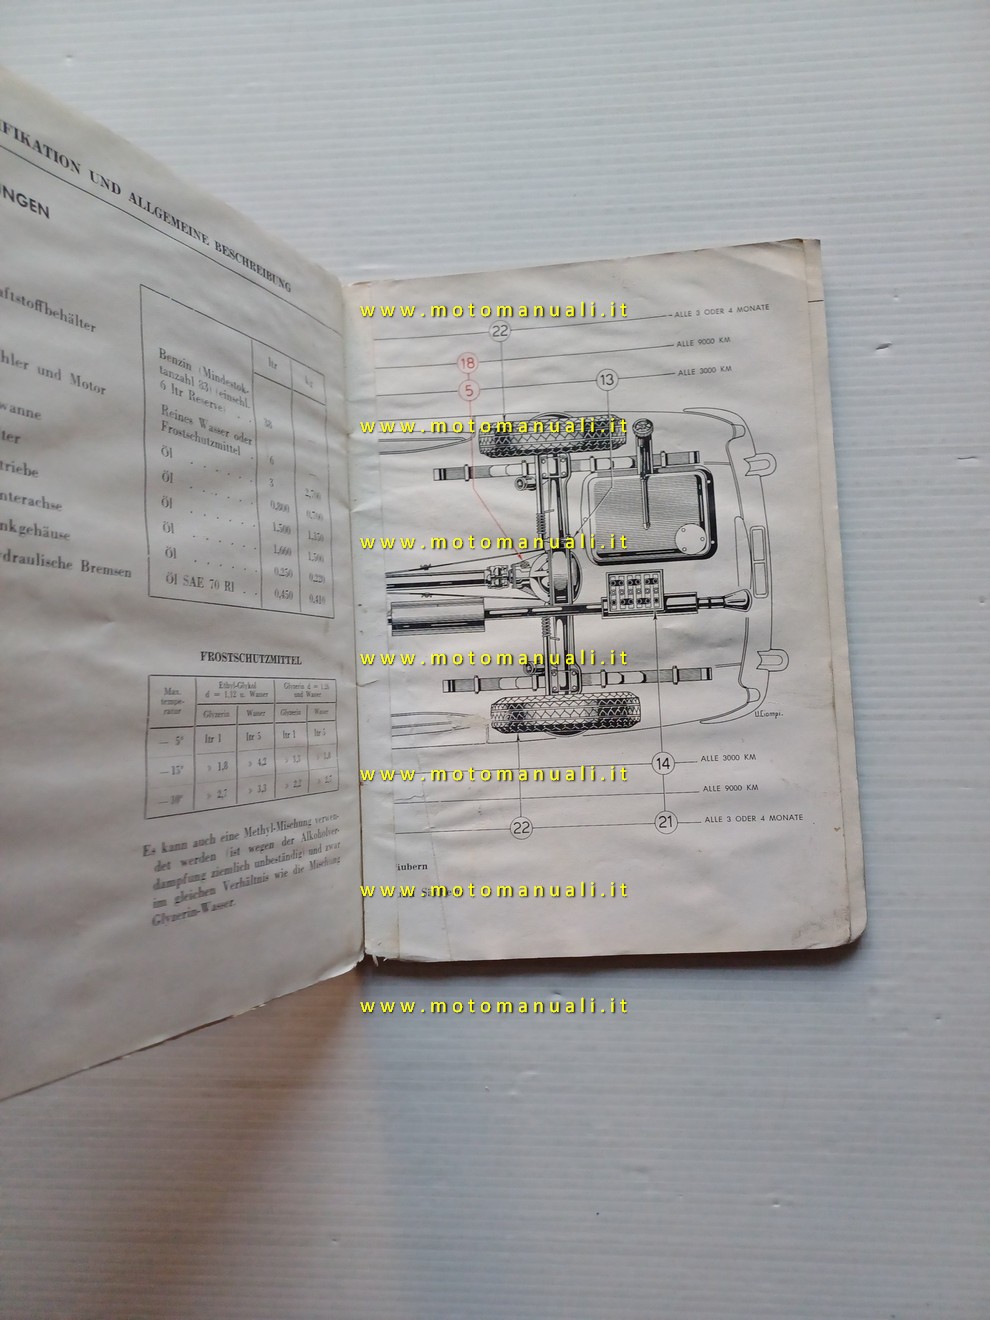 IFIKATION UND ALLGEMEINE BESCHREIBUNG
UNGEN
aftstoffbehälter
hler und Motor
wanne
ter
triebe
nterachse
nkgehäuse
draulische Bremsen
ltr kg
Benzin (Mindestok-
tanzahl 83) (einschl.
6 ltr Reserve) . .
Reines Wasser oder
Frostschutzmittel .
Öl . . . . . .
Öl . . . . . .
Öl . . . . . .
Öl . . . . . .
Öl . . . . . .
Öl SAE 70 R1 . .
38
6
3 2,700
0,800 0,700
1,500 1,350
1,660 1,500
0,250 0,220
0,450 0,410
FROSTSCHUTZMITTEL
Max.
tempe-
ratur
Ethyl-Glykol
d = 1,12 u. Wasser
Glyzerin d = 1,26
und Wasser
Glyzerin Wasser Glyzerin Wasser
— 5° ltr 1 ltr 5 ltr 1 ltr 5
— 15° » 1,8 » 4,2
» 2,7 » 3,3
Es kann auch eine Methyl-Mischung verwen-
det werden (ist wegen der Alkoholver-
dampfung ziemlich unbeständig) und zwar
im gleichen Verhältnis wie die Mischung
Glyzerin-Wasser.
ALLE 3 ODER 4 MONATE
22
ALLE 9000 KM
18
5
13
ALLE 3000 KM
14
ALLE 3000 KM
ALLE 9000 KM
22
21
ALLE 3 ODER 4 MONATE
äubern
www.motomanuali.it
www.motomanuali.it
www.motomanuali.it
www.motomanuali.it
www.motomanuali.it
www.motomanuali.it
www.motomanuali.it